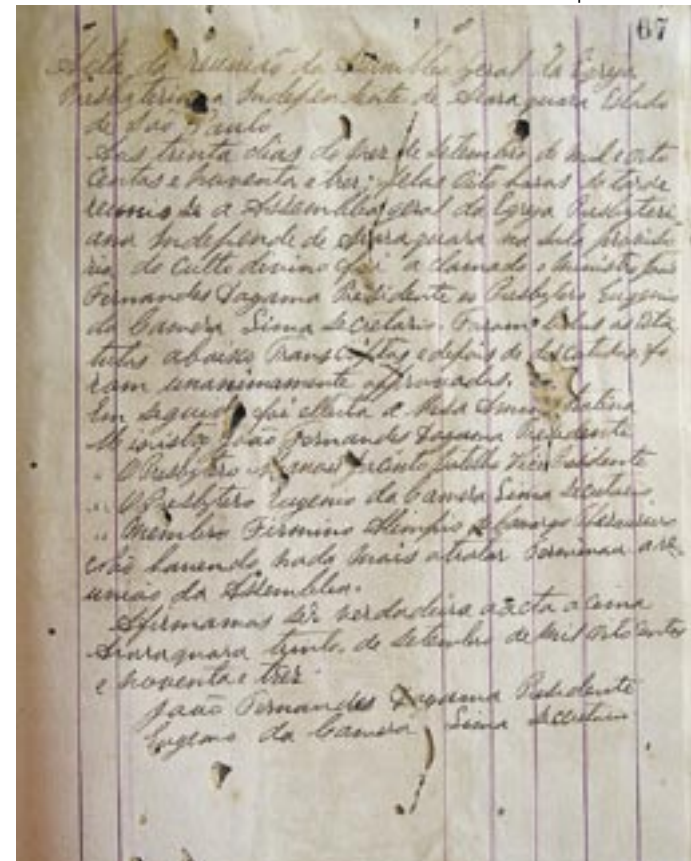 67
Acta da reunião da Assemblea geral da Egreja
Presbyteriana Independente de Araraquara Estado
de São Paulo
Aos trinta dias do mez de Setembro de mil e oito
centos e noventa e trez pelas oito horas da tarde
reunio se a Assemblea geral da Egreja Presbyteri
ana Independe de Araraquara na sala provisó
ria do Culto divino foi a clamado o Ministro João
Fernandes Dagama Presidente o Presbytero Eugenio
da Camera Lima Secretario. Foram lidas as Esta
tutos abaixo transcriptas e depois de discutidos fo
ram unanimamente approvadas.
Em seguida foi elleita a Mesa Admi
Ministro João Fernandes Dagama Presidente
" O Presbytero Jacinto Vice Presidente
" O Presbytero Eugenio da Camera Lima Secretario
" Membro Firmino Olimpio de Camargo Thesoureiro
e não havendo nada mais a tratar terminou a re
união da Assemblea.
Afirmamos ser verdadeira a acta acima
Araraquara trinta de Setembro de mil oito centos
e noventa e trez
João Fernandes Dagama Presidente
Eugenio da Camera Lima Secretario